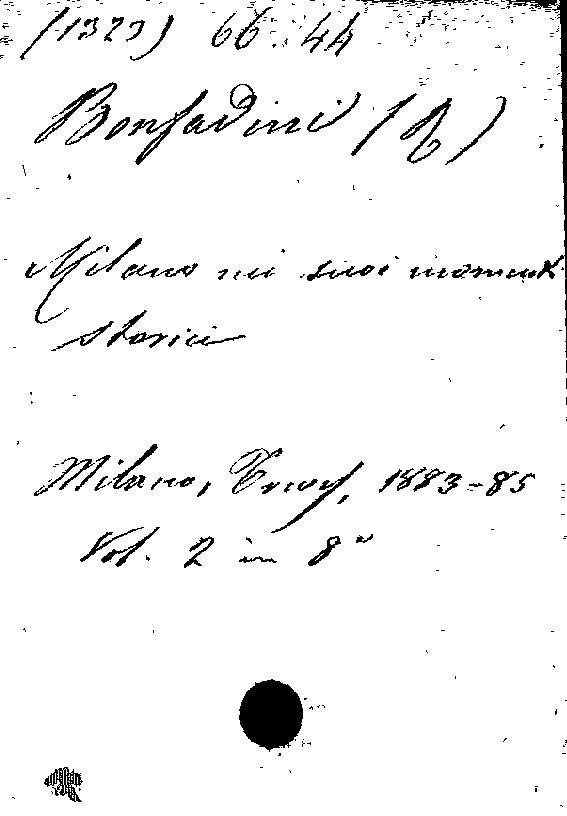 (1323) 66. 44
Bonfadini (R)
Milano nei suoi momenti
storici
Milano, Treves, 1883-85
Vol. 2 in 8°